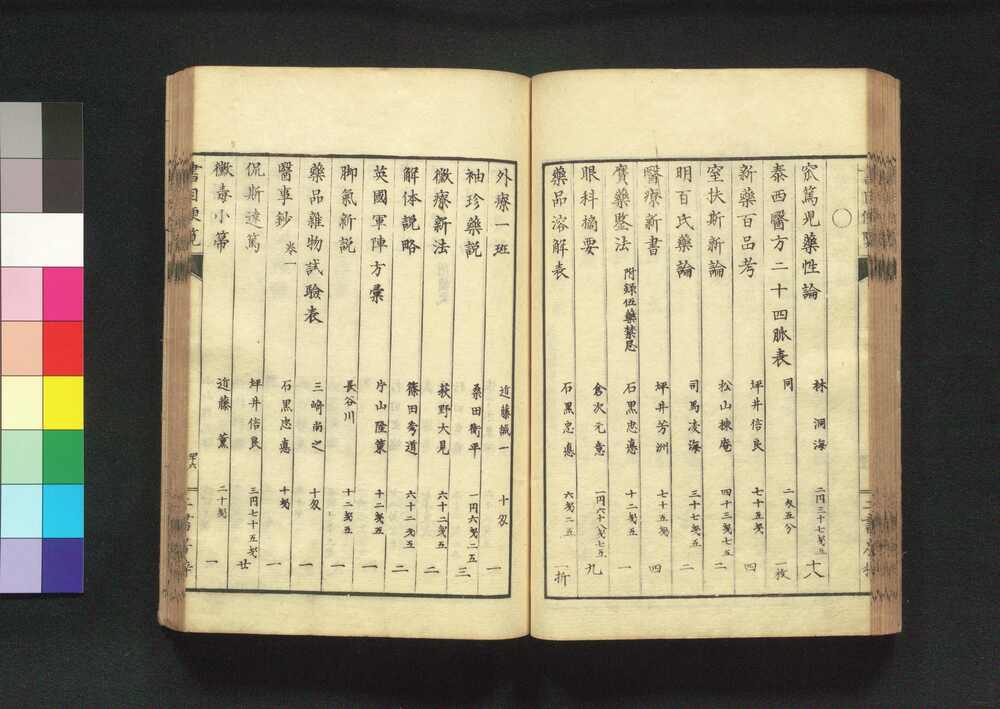 〇
窊篤児藥性論 林洞海 二円三十七戔五 十八
泰西醫方二十四脉表 同 二戔五分 一枚
新藥百品考 坪井信良 七十五戔 四
窒扶斯新論 松山棟庵 四十三戔七五 二
明百氏藥論 司馬凌海 三十七戔五 二
醫療新書 坪井芳洲 七十五戔 四
贗藥鑒法 附録伍藥禁忌 石黒忠悳 十二戔五 一
眼科摘要 倉次元意 一円六十八戔七五 九
藥品溶解表 石黒忠悳 六戔二五 一折
外療一班 近藤誠一 十戔 一
袖珍藥説 桑田衡平 一円六戔二五 三
黴療新法 荻野大見 六十二戔五 二
解体説略 篠田秀道 六十二戔五 二
英國軍陣方彙 片山隆薫 十二戔五 一
脚氣新説 長谷川 十二戔五 一
藥品雜物試驗表 三崎尚之 十戔 一
醫事鈔 巻一 石黒忠悳 十戔 一
侃斯達篤 坪井信良 三円七十五戔 廿
黴毒小箒 近藤薫 二十戔 一
書目便覧 四十八